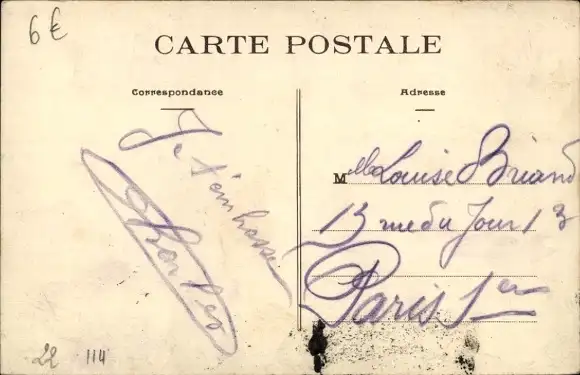 6€
CARTE POSTALE
Correspondance
Adresse
Je t'embrasse
Charles
Mlle Louise Briand
13 rue du Jour 13
Paris 1er
22 114